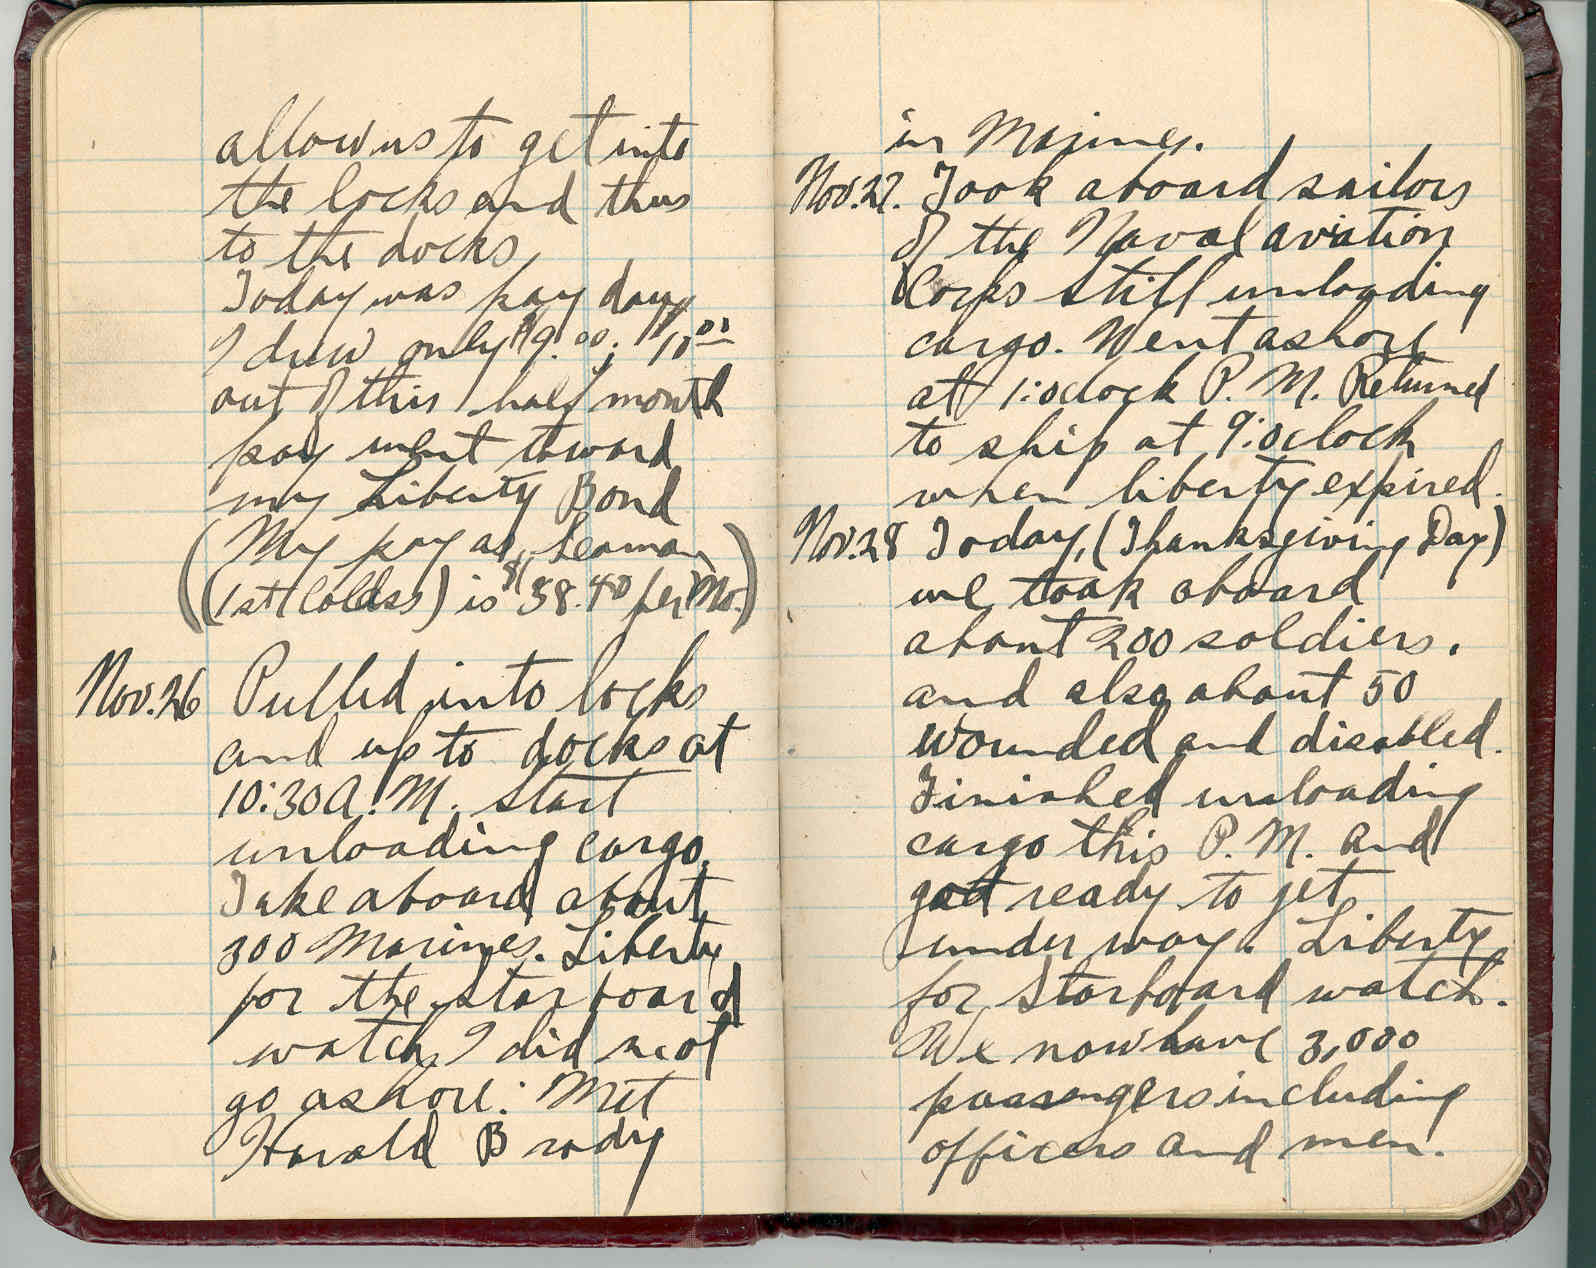 allow us to get into
the locks and thus
to the docks.
Today was pay day,
I drew only $9.00; 10.00
out of this half month
pay went toward
my Liberty Bond
(My pay as, seaman
(1st Class) is $38.40 per Mo.)
Nov. 26 Pulled into locks
and up to docks at
10:30 A.M. start
unloading cargo.
Take aboard about
300 Marines. Liberty
for the starboard
watch, I did not
go ashore. Met
Harold Brady
in Marines.
Nov. 27. Took aboard sailors
of the Naval aviation
Corps still unloading
cargo. Went ashore
at 1:oclock P. M. Returned
to ship at 9:oclock
when liberty expired.
Nov. 28 Today, (Thanksgiving Day)
we took aboard
about 200 soldiers.
and also about 50
wounded and disabled.
Finished unloading
cargo this P. M. and
got ready to get
under way. Liberty
for Starboard watch.
We now have 3,000
passengers including
officers and men.